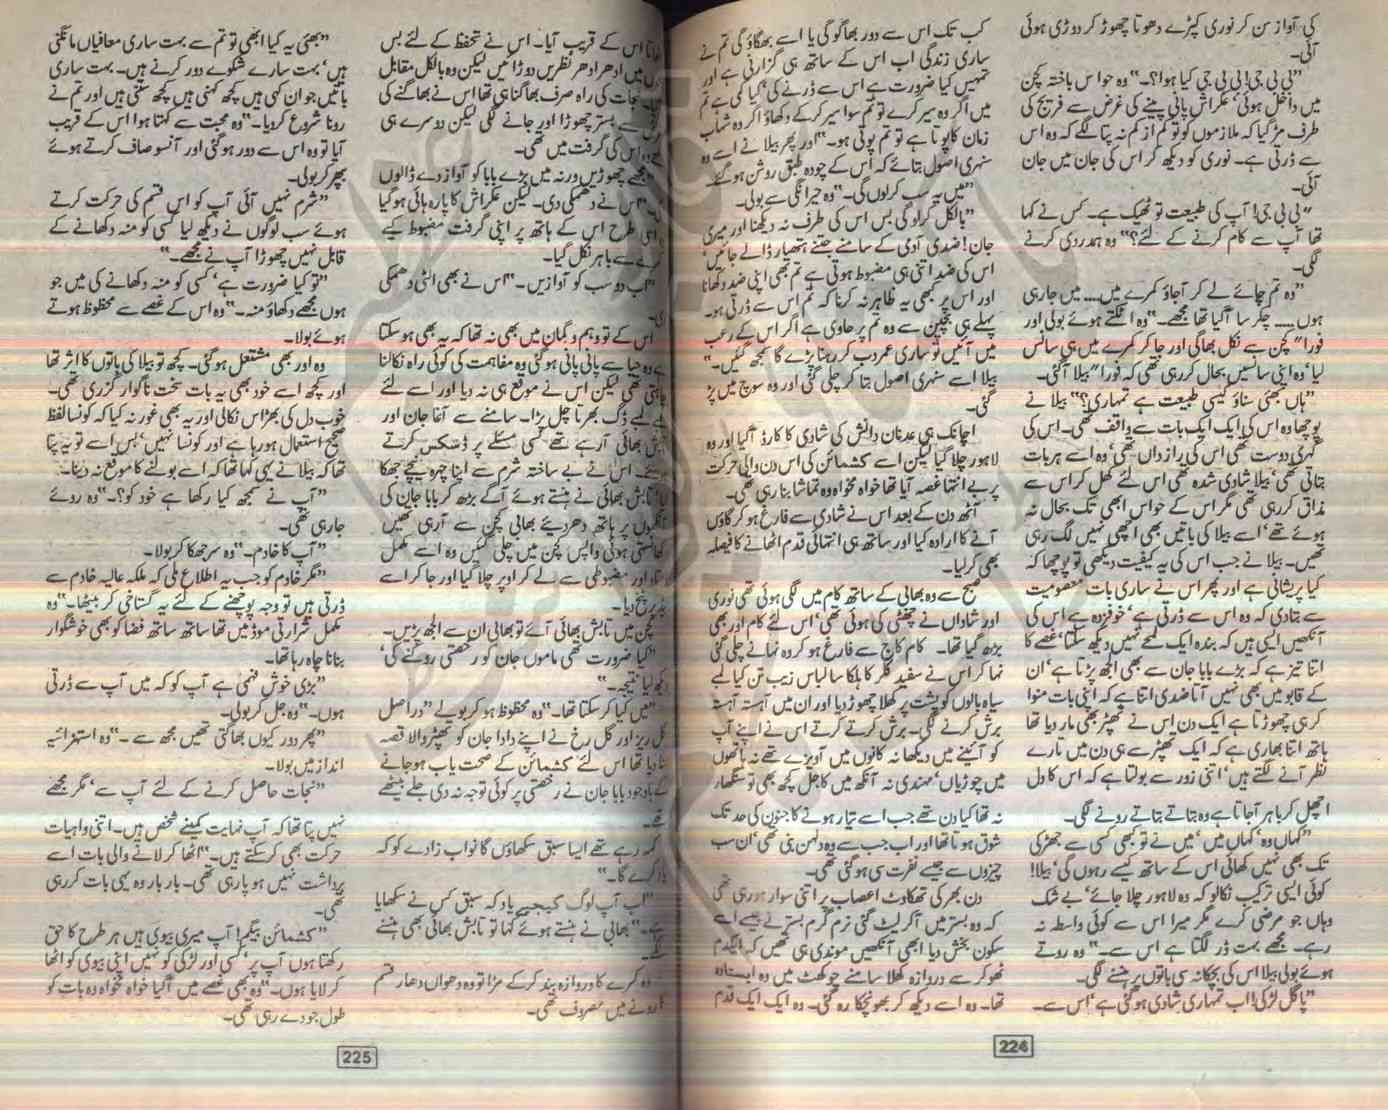 کی آواز سن کر نوری کپڑے دھونا چھوڑ کر دوڑی ہوئی
آئی۔
"بی بی جی! بی بی جی کیا ہوا؟۔" وہ حواس باختہ کچن
میں داخل ہوئی' عکراش پانی پینے کی غرض سے فریج کی
طرف مڑ گیا کہ ملازموں کو تو کم از کم نہ پتا لگے کہ وہ اس
سے ڈرتی ہے۔ نوری کو دیکھ کر اس کی جان میں جان
آئی۔
"بی بی جی! آپ کی طبیعت تو ٹھیک ہے۔ کس نے کہا
تھا آپ سے کام کرنے کے لئے؟" وہ ہمدردی کرنے
لگی۔
"وہ تم چائے لے کر آجاؤ کمرے میں.... میں جا رہی
ہوں.... چکر سا آگیا تھا مجھے۔" وہ اٹکتے ہوئے بولی اور
فورا" کچن سے نکل بھاگی اور جا کر کمرے میں ہی سانس
لیا' وہ اپنی سانسیں بحال کر رہی تھی کہ فورا" بیلا آگئی۔
"ہاں بھئی سناؤ کیسی طبیعت ہے تمہاری؟" بیلا نے
پوچھا وہ اس کی ایک ایک بات سے واقف تھی۔ اس کی
گہری دوست تھی اس کی راز داں تھی' وہ اسے ہر بات
بتاتی تھی' بیلا شادی شدہ تھی اس لئے کھل کر اس سے
مذاق کر رہی تھی مگر اس کے حواس ابھی تک بحال نہ
ہوئے تھے' اسے بیلا کی باتیں بھی اچھی نہیں لگ رہی
تھیں۔ بیلا نے جب اس کی یہ کیفیت دیکھی تو پوچھا کہ
کیا پریشانی ہے اور پھر اس نے ساری بات معصومیت
سے بتا دی کہ وہ اس سے ڈرتی ہے' خوفزدہ ہے اس کی
آنکھیں ایسی ہیں کہ بندہ ایک لمحے نہیں دیکھ سکتا' غصے کا
اتنا تیز ہے کہ بڑے بابا جان سے بھی الجھ پڑتا ہے' ان
کے قابو میں بھی نہیں آتا ضدی اتنا ہے کہ اپنی بات منوا
کر ہی چھوڑتا ہے ایک دن اس نے تھپڑ بھی مار دیا تھا
ہاتھ اتنا بھاری ہے کہ ایک تھپڑ سے ہی دن میں تارے
نظر آنے لگتے ہیں' اتنی زور سے بولتا ہے کہ اس کا دل
اچھل کر باہر آجاتا ہے وہ بتاتے بتاتے رونے لگی۔
"کہاں وہ' کہاں میں' میں نے تو بھی کسی سے جھڑکی
تک بھی نہیں کھائی اس کے ساتھ کیسے رہوں گی' بیلا!
کوئی ایسی ترکیب نکالو کہ وہ لاہور چلا جائے' بے شک
وہاں جو مرضی کرے مگر میرا اس سے کوئی واسطہ نہ
رہے۔ مجھے بہت ڈر لگتا ہے اس سے۔" وہ روتے
ہوئے بولی بیلا اس کی بچکانہ سی باتوں پر ہنسنے لگی۔
"پاگل لڑکی! اب تمہاری شادی ہو گئی ہے' اس سے۔
کب تک اس سے دور بھاگو گی یا اسے بھگاؤ گی تم نے
ساری زندگی اب اس کے ساتھ ہی گزارنی ہے اور
تمہیں کیا ضرورت ہے اس سے ڈرنے کی' کیا کمی ہے تم
میں اگر وہ سیر کرے تو تم سوا سیر کر کے دکھاؤ اگر وہ شہاب
زمان کا پوتا ہے تو تم پوتی ہو۔" اور پھر بیلا نے اسے وہ
سنہری اصول بتائے کہ اس کے چودہ طبق روشن ہو گئے۔
"میں یہ سب کرلوں گی۔" وہ حیرانگی سے بولی۔
"بالکل کرلو گی بس اس کی طرف نہ دیکھنا اور میری
جان! ضدی آدمی کے سامنے جتنے ہتھیار ڈالے جائیں'
اس کی ضد اتنی ہی مضبوط ہوتی ہے تم بھی اپنی ضد دکھانا
اور اس پر بھی یہ ظاہر نہ کرنا کہ تم اس سے ڈرتی ہو۔
پہلے ہی بچپن سے وہ تم پر حاوی ہے اگر اس کے رعب
میں آئیں تو ساری عمر دب کر رہنا پڑے گا سمجھ گئیں۔"
بیلا اسے سنہری اصول بتا کر چلی گئی اور وہ سوچ میں پڑ
گئی۔
اچانک ہی عدنان دانش کی شادی کا کارڈ آگیا اور وہ
لاہور چلا گیا لیکن اسے کشمائن کی اس دن والی حرکت
پر بے انتہا غصہ آیا تھا خواہ مخواہ وہ تماشا بنا رہی تھی۔
آٹھ دن کے بعد اس نے شادی سے فارغ ہو کر گاؤں
آنے کا ارادہ کیا اور ساتھ ہی انتہائی قدم اٹھانے کا فیصلہ
بھی کر لیا۔
صبح سے وہ بھابی کے ساتھ کام میں لگی ہوئی تھی نوری
اور شاداں نے چھٹی کی ہوئی تھی' اس لئے کام اور بھی
بڑھ گیا تھا۔ کام کاج سے فارغ ہو کر وہ نہانے چلی گئی
نہا کر اس نے سفید کلر کا ہلکا سا لباس زیب تن کیا لمبے
سیاہ بالوں کو پشت پر کھلا چھوڑ دیا اور ان میں آہستہ آہستہ
برش کرنے لگی۔ برش کرتے کرتے اس نے اپنے آپ
کو آئینے میں دیکھا نہ کانوں میں آویزے تھے نہ ہاتھوں
میں چوڑیاں' مہندی نہ آنکھ میں کاجل کچھ بھی تو سنگھار
نہ تھا کیا دن تھے جب اسے تیار ہونے کا جنون کی حد تک
شوق ہوتا تھا اور اب جب سے وہ دلہن بنی تھی' ان سب
چیزوں سے جیسے نفرت سی ہو گئی تھی۔
دن بھر کی تھکاوٹ اعصاب پر اتنی سوار ہو رہی تھی
کہ وہ بستر میں آکر لیٹ گئی نرم گرم بستر نے جیسے اسے
سکون بخش دیا ابھی آنکھیں موندی ہی تھیں کہ ایکدم
ٹھوکر سے دروازہ کھلا سامنے چوکھٹ میں وہ ایستادہ
تھا۔ وہ اسے دیکھ کر بھونچکا رہ گئی۔ وہ ایک ایک قدم
224
اس کے قریب آیا۔ اس نے تحفظ کے لئے بس
میں ادھر ادھر نظریں دوڑائیں لیکن وہ بالکل مقابل
نجات کی راہ صرف بھاگنا ہی تھا اس نے بھاگنے کی
سے بستر چھوڑا اور جانے لگی لیکن دوسرے ہی
وہ اس کی گرفت میں تھی۔
"مجھے چھوڑیں ورنہ میں بڑے بابا کو آواز دے ڈالوں
اس نے دھمکی دی۔ لیکن عکراش کا پارہ ہائی ہو گیا
اسی طرح اس کے ہاتھ پر اپنی گرفت مضبوط کیے
کمرے سے باہر نکل گیا۔
"اب دو سب کو آوازیں۔" اس نے بھی الٹی دھمکی
دی۔
اس کے تو وہم و گمان میں بھی نہ تھا کہ یہ بھی ہو سکتا
ہے وہ حیا سے پانی پانی ہو گئی وہ مفاہمت کی کوئی راہ نکالنا
چاہتی تھی لیکن اس نے موقع ہی نہ دیا اور اسے لئے
لمبے ڈگ بھرتا چل پڑا۔ سامنے سے آغا جان اور
تابش بھائی آرہے تھے کسی مسئلے پر ڈسکس کرتے
ہوئے۔ اس نے بے ساختہ شرم سے اپنا چہرہ نیچے جھکا
لیا تابش بھائی نے ہنستے ہوئے آگے بڑھ کر بابا جان کی
آنکھوں پر ہاتھ دھر دیئے بھابی کچن سے آرہی تھیں
کھانستی ہوئی واپس کچن میں چلی گئیں وہ اسے مکمل
اور مضبوطی سے لے کر اوپر چلا گیا اور جا کر اسے
بیڈ پر پٹخ دیا۔
کچن میں تابش بھائی آئے تو بھابی ان سے الجھ پڑیں۔
"کیا ضرورت تھی ماموں جان کو رخصتی روکنے کی'
دیکھ لیا نتیجہ۔"
"میں کیا کر سکتا تھا۔" وہ محظوظ ہو کر بولے "دراصل
گل ریز اور گل رخ نے اپنے دادا جان کو تھپڑ والا قصہ
بتا دیا تھا اس لئے کشمائن کے صحت یاب ہو جانے
کے باوجود بابا جان نے رخصتی پر کوئی توجہ نہ دی جلے بیٹھے
تھے۔
کہہ رہے تھے ایسا سبق سکھاؤں گا نواب زادے کو کہ
یاد کرے گا۔"
"اب آپ لوگ کیجیے یاد کہ سبق کس نے سکھایا
ہے۔" بھابی نے ہنستے ہوئے کہا تو تابش بھائی بھی ہنسنے
لگے۔
وہ کمرے کا دروازہ بند کر کے مڑا تو وہ دھواں دھار قسم
کا رونے میں مصروف تھی۔
"بھئی یہ کیا ابھی تو تم سے بہت ساری معافیاں مانگنی
ہیں' بہت سارے شکوے دور کرنے ہیں۔ بہت ساری
باتیں جو ان کہی ہیں کچھ کہنی ہیں کچھ سنتی ہیں اور تم نے
رونا شروع کر دیا۔" وہ محبت سے کہتا ہوا اس کے قریب
آیا تو وہ اس سے دور ہو گئی اور آنسو صاف کرتے ہوئے
بپھر کر بولی۔
"شرم نہیں آئی آپ کو اس قسم کی حرکت کرتے
ہوئے سب لوگوں نے دیکھ لیا کسی کو منہ دکھانے کے
قابل نہیں چھوڑا آپ نے مجھے۔"
"تو کیا ضرورت ہے' کسی کو منہ دکھانے کی میں جو
ہوں مجھے دکھاؤ منہ۔" وہ اس کے غصے سے محظوظ ہوتے
ہوئے بولا۔
وہ اور بھی مشتعل ہو گئی۔ کچھ تو بیلا کی باتوں کا اثر تھا
اور کچھ اسے خود بھی یہ بات سخت ناگوار گزری تھی۔
خوب دل کی بھڑاس نکالی اور یہ بھی غور نہ کیا کہ کونسا لفظ
صحیح استعمال ہو رہا ہے اور کونسا نہیں' بس اسے تو یہ پتا
تھا کہ بیلا نے یہی کہا تھا کہ اسے بولنے کا موقع نہ دینا۔
"آپ نے سمجھ کیا رکھا ہے خود کو؟۔" وہ روئے
جا رہی تھی۔
"آپ کا خادم۔" وہ سر جھکا کر بولا۔
"مگر خادم کو جب یہ اطلاع ملی کہ ملکہ عالیہ خادم سے
ڈرتی ہیں تو وجہ پوچھنے کے لئے یہ گستاخی کر بیٹھا۔" وہ
مکمل شرارتی موڈ میں تھا ساتھ ساتھ فضا کو بھی خوشگوار
بنانا چاہ رہا تھا۔
"بڑی خوش فہمی ہے آپ کو کہ میں آپ سے ڈرتی
ہوں۔" وہ جل کر بولی۔
"پھر دور کیوں بھاگتی تھیں مجھ سے۔" وہ استہزائیہ
انداز میں بولا۔
"نجات حاصل کرنے کے لئے آپ سے' مگر مجھے
نہیں پتا تھا کہ آپ نہایت کمینے شخص ہیں۔ اتنی واہیات
حرکت بھی کر سکتے ہیں۔" اٹھا کر لانے والی بات اسے
برداشت نہیں ہو پا رہی تھی۔ بار بار وہ یہی بات کر رہی
تھی۔
"کشمائن بیگم! آپ میری بیوی ہیں ہر طرح کا حق
رکھتا ہوں آپ پر' کسی اور لڑکی کو نہیں اپنی بیوی کو اٹھا
کر لایا ہوں۔" وہ بھی غصے میں آگیا خواہ مخواہ وہ بات کو
طول جو دے رہی تھی۔
225